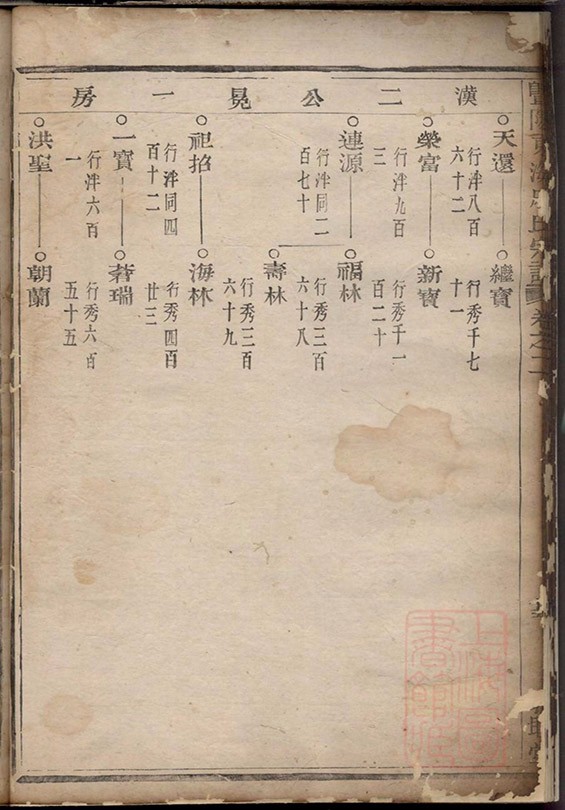 漢二公晃一房
天還
行泮八百六十二
繼寶
行秀千七十一
榮富
行泮九百三
新寶
行秀千一百二十
連源
行泮同二百七十
福林
行秀三百六十八
壽林
行秀三百六十九
祖招
行泮同四百十二
海林
行秀四百廿三
一寶
行泮六百一
若瑞
行秀六百五十五
洪聖
朝蘭
氏宗譜卷之二
上海圖書館藏